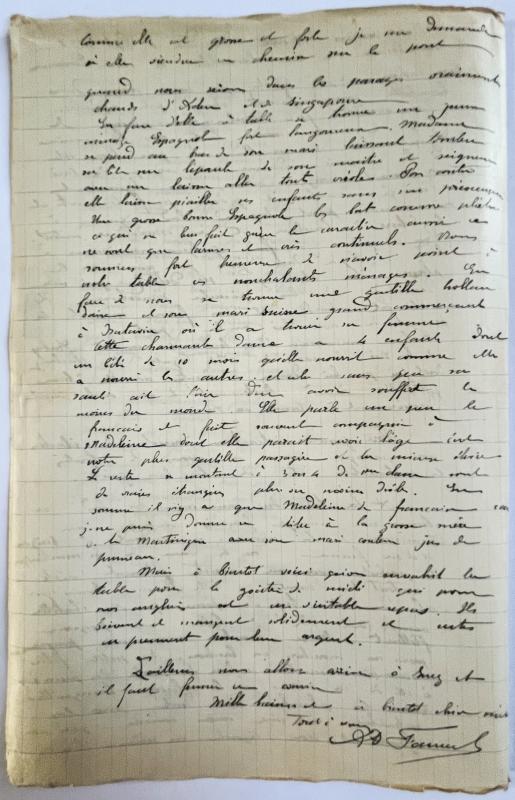 comme elle est grosse et forte je me demande
si elle viendra en chemise sur le pont
quand nous serons dans les parages vraiment
chauds d'Aden et de Singapoure
En face d'elle à table se trouve un jeune
ménage Espagnol fort langoureux. Madame
se pend au bras de son mari laissant tomber
sa tête sur l'epaule de son maitre et seigneur
avec un laisser aller tout créole. Par contre
elle laisse piailler ses enfants sans
Une grosse bonne Espagnole les bat comme plâtre
ce qui ne leur fait guère le caractère aussi ce
ne sont que larmes et cris continuels. Nous
sommes fort heureux de n'avoir point à
notre table ces nonchalants ménages. En
face de nous se trouve une gentille hollan
daise et son mari Suisse grand commerçant
à Batavia où il a trouvé sa femme
Cette charmante dame a 4 enfants dont
un bébé de 10 mois qu'elle nourrit comme elle
a nourri les autres et cela sans que sa
santé ait l'air d'en avoir souffert le
moins du monde. Elle parle un peu le
français et fait souvent compagnie à
Madeleine dont elle parait avoir l'âge c'est
notre plus gentille passagère et la mieux élevée
Le reste se montant à 3 ou 4 de 1re classe sont
de vraies étrangers plus ou moins drôles. En
somme il n'y a que Madeleine de française car
je ne puis donner ce titre à la grosse mère
de la Martinique avec son mari couleur jus de
pruneau.
Mais à bientot voici qu'on envahit la
table pour le goûter de midi qui pour
nos anglais est un véritable repas. Ils
boivent et mangent solidement et certes
en prennent pour leur argent.
D'ailleurs nous allons arriver à Suez et
il faut fermer ce courrier
Mille baisers et à bientot
Tout à vous